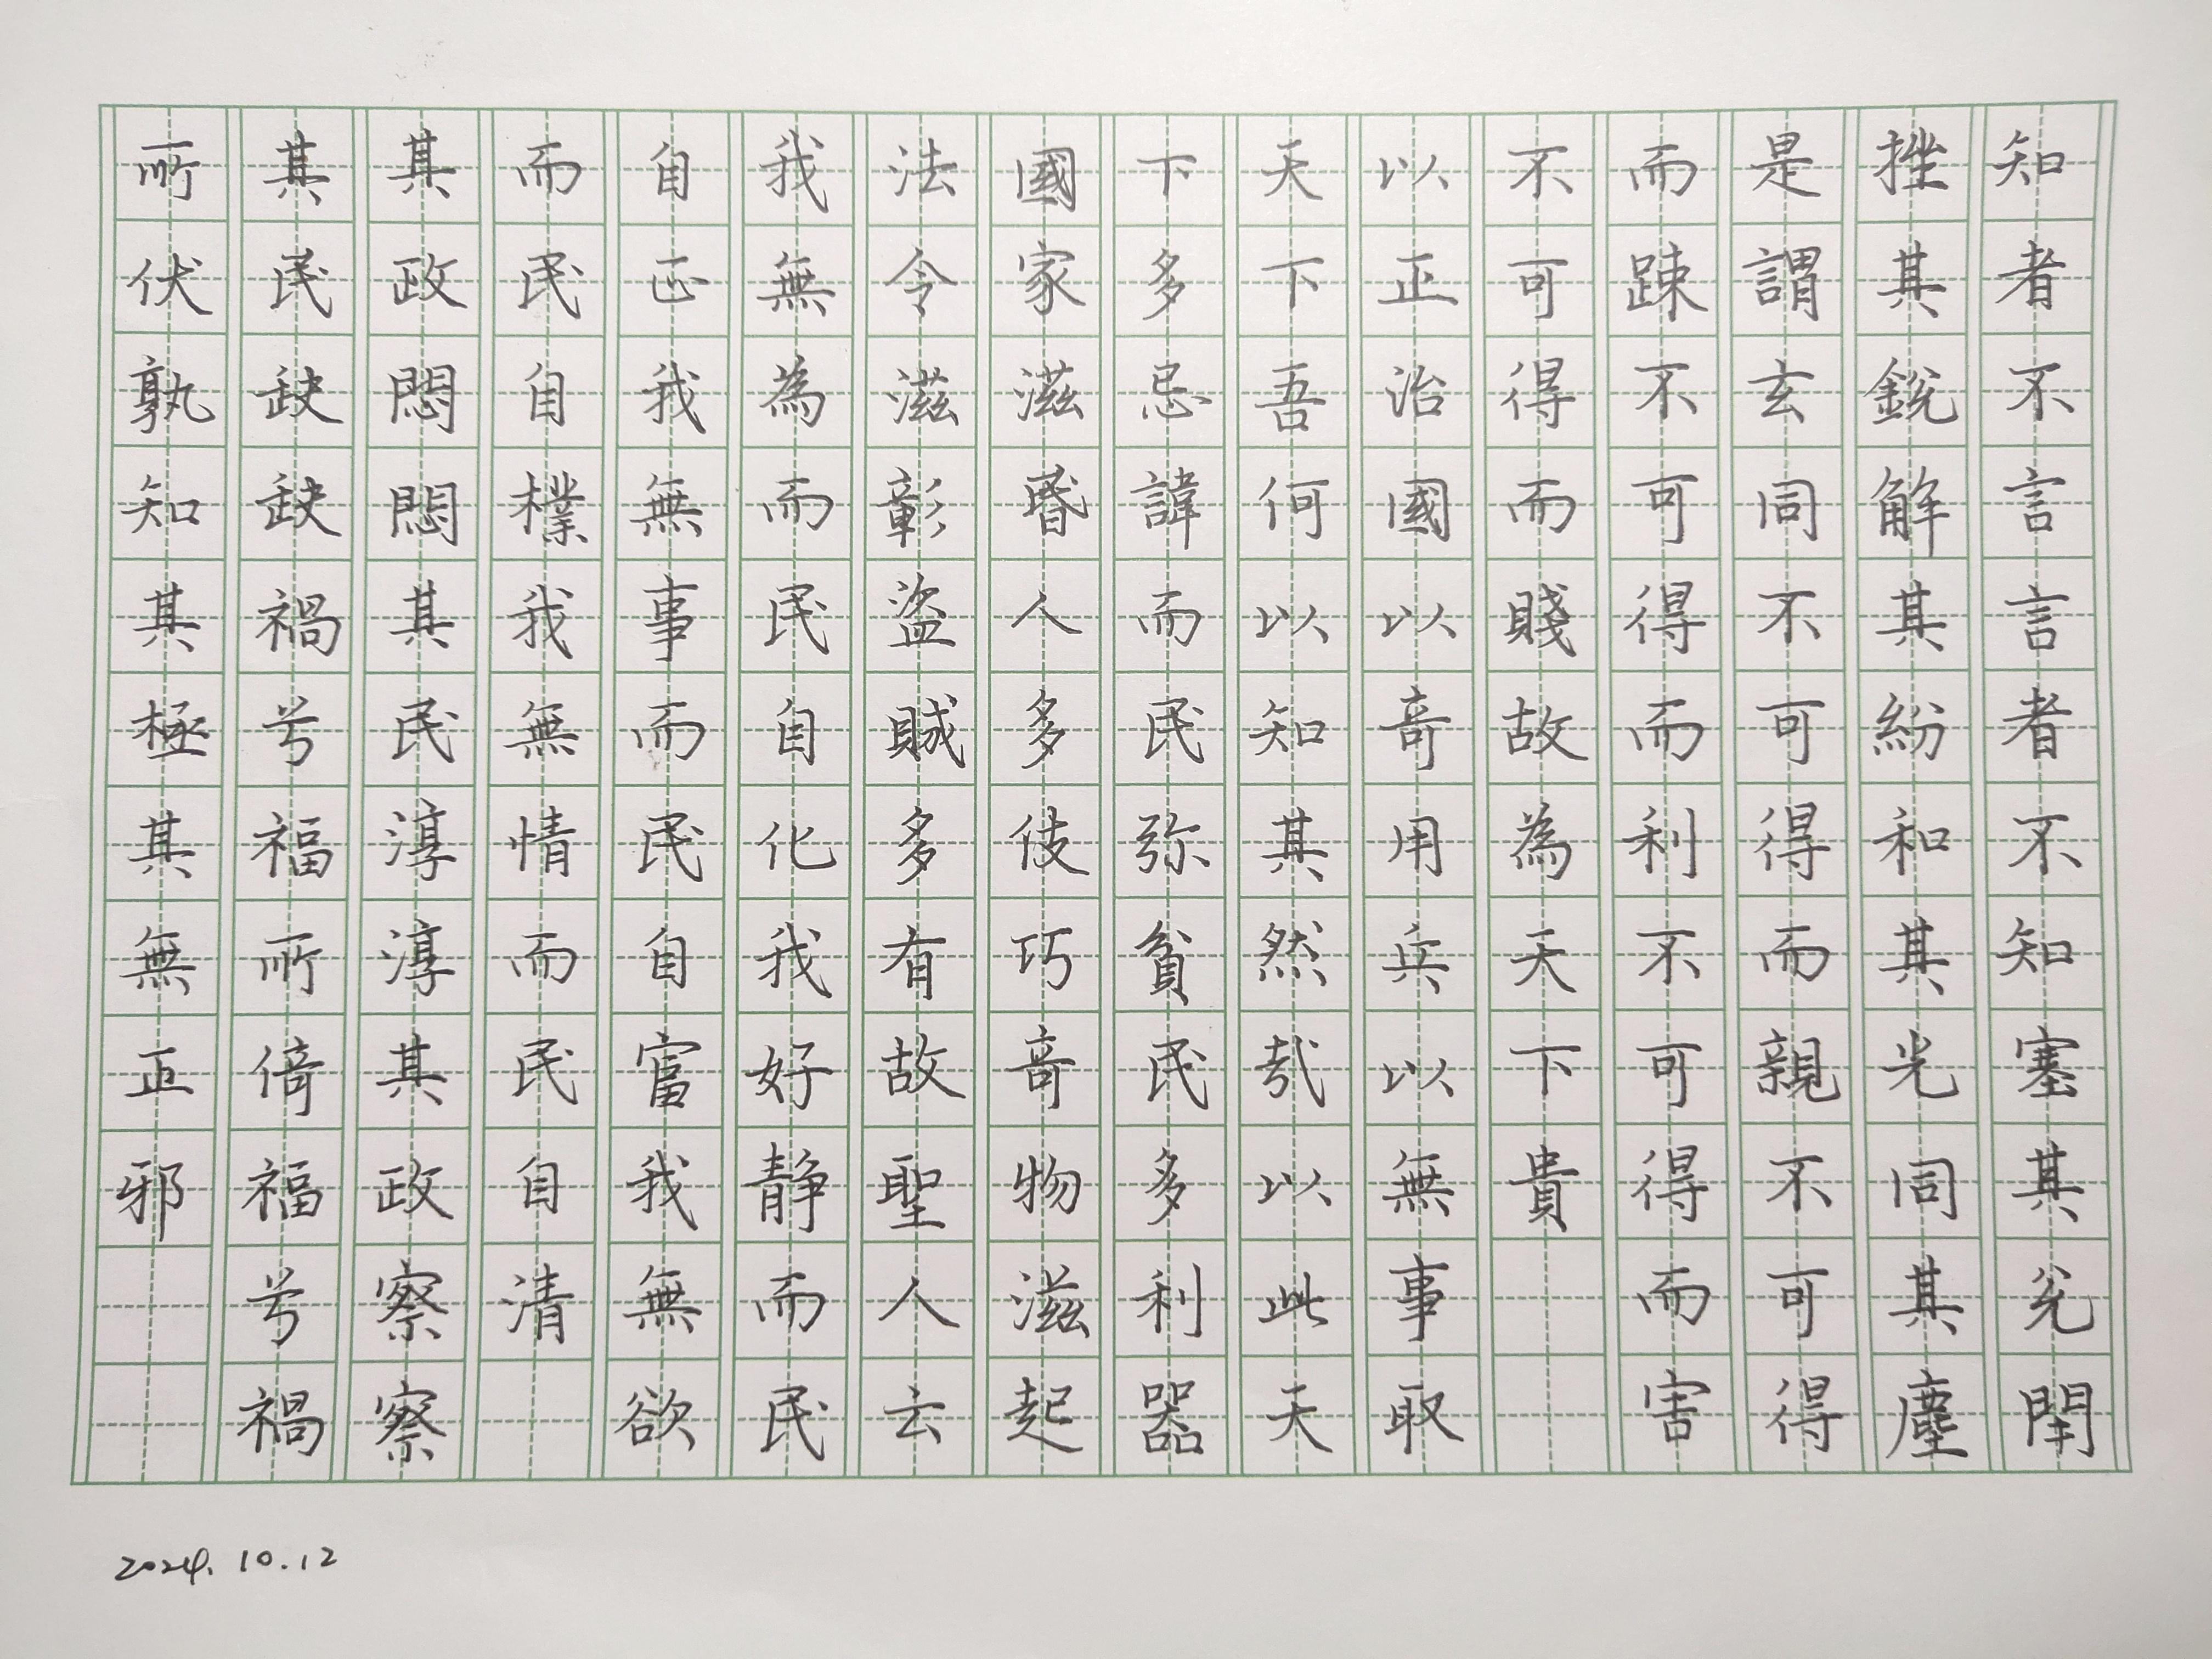 知者不言言者不知塞其兊閇
挫其銳解其紛和其光同其塵
是謂玄同不可得而親不可得
而踈不可得而利不可得而害
不可得而賤故為天下貴
以正治國以竒用兵以無事取
天下吾何以知其然㢤以此天
下多忌諱而民弥貧民多利器
國家滋昬人多伎巧竒物滋起
法令滋彰盜賊多有故聖人云
我無為而民自化我好静而民
自正我無事而民自富我無欲
而民自樸我無情而民自清
其政悶悶其民淳淳其政察察
其民𡙇𡙇禍兮福所倚福兮禍
所伏孰知其極其無正邪
2024.10.12